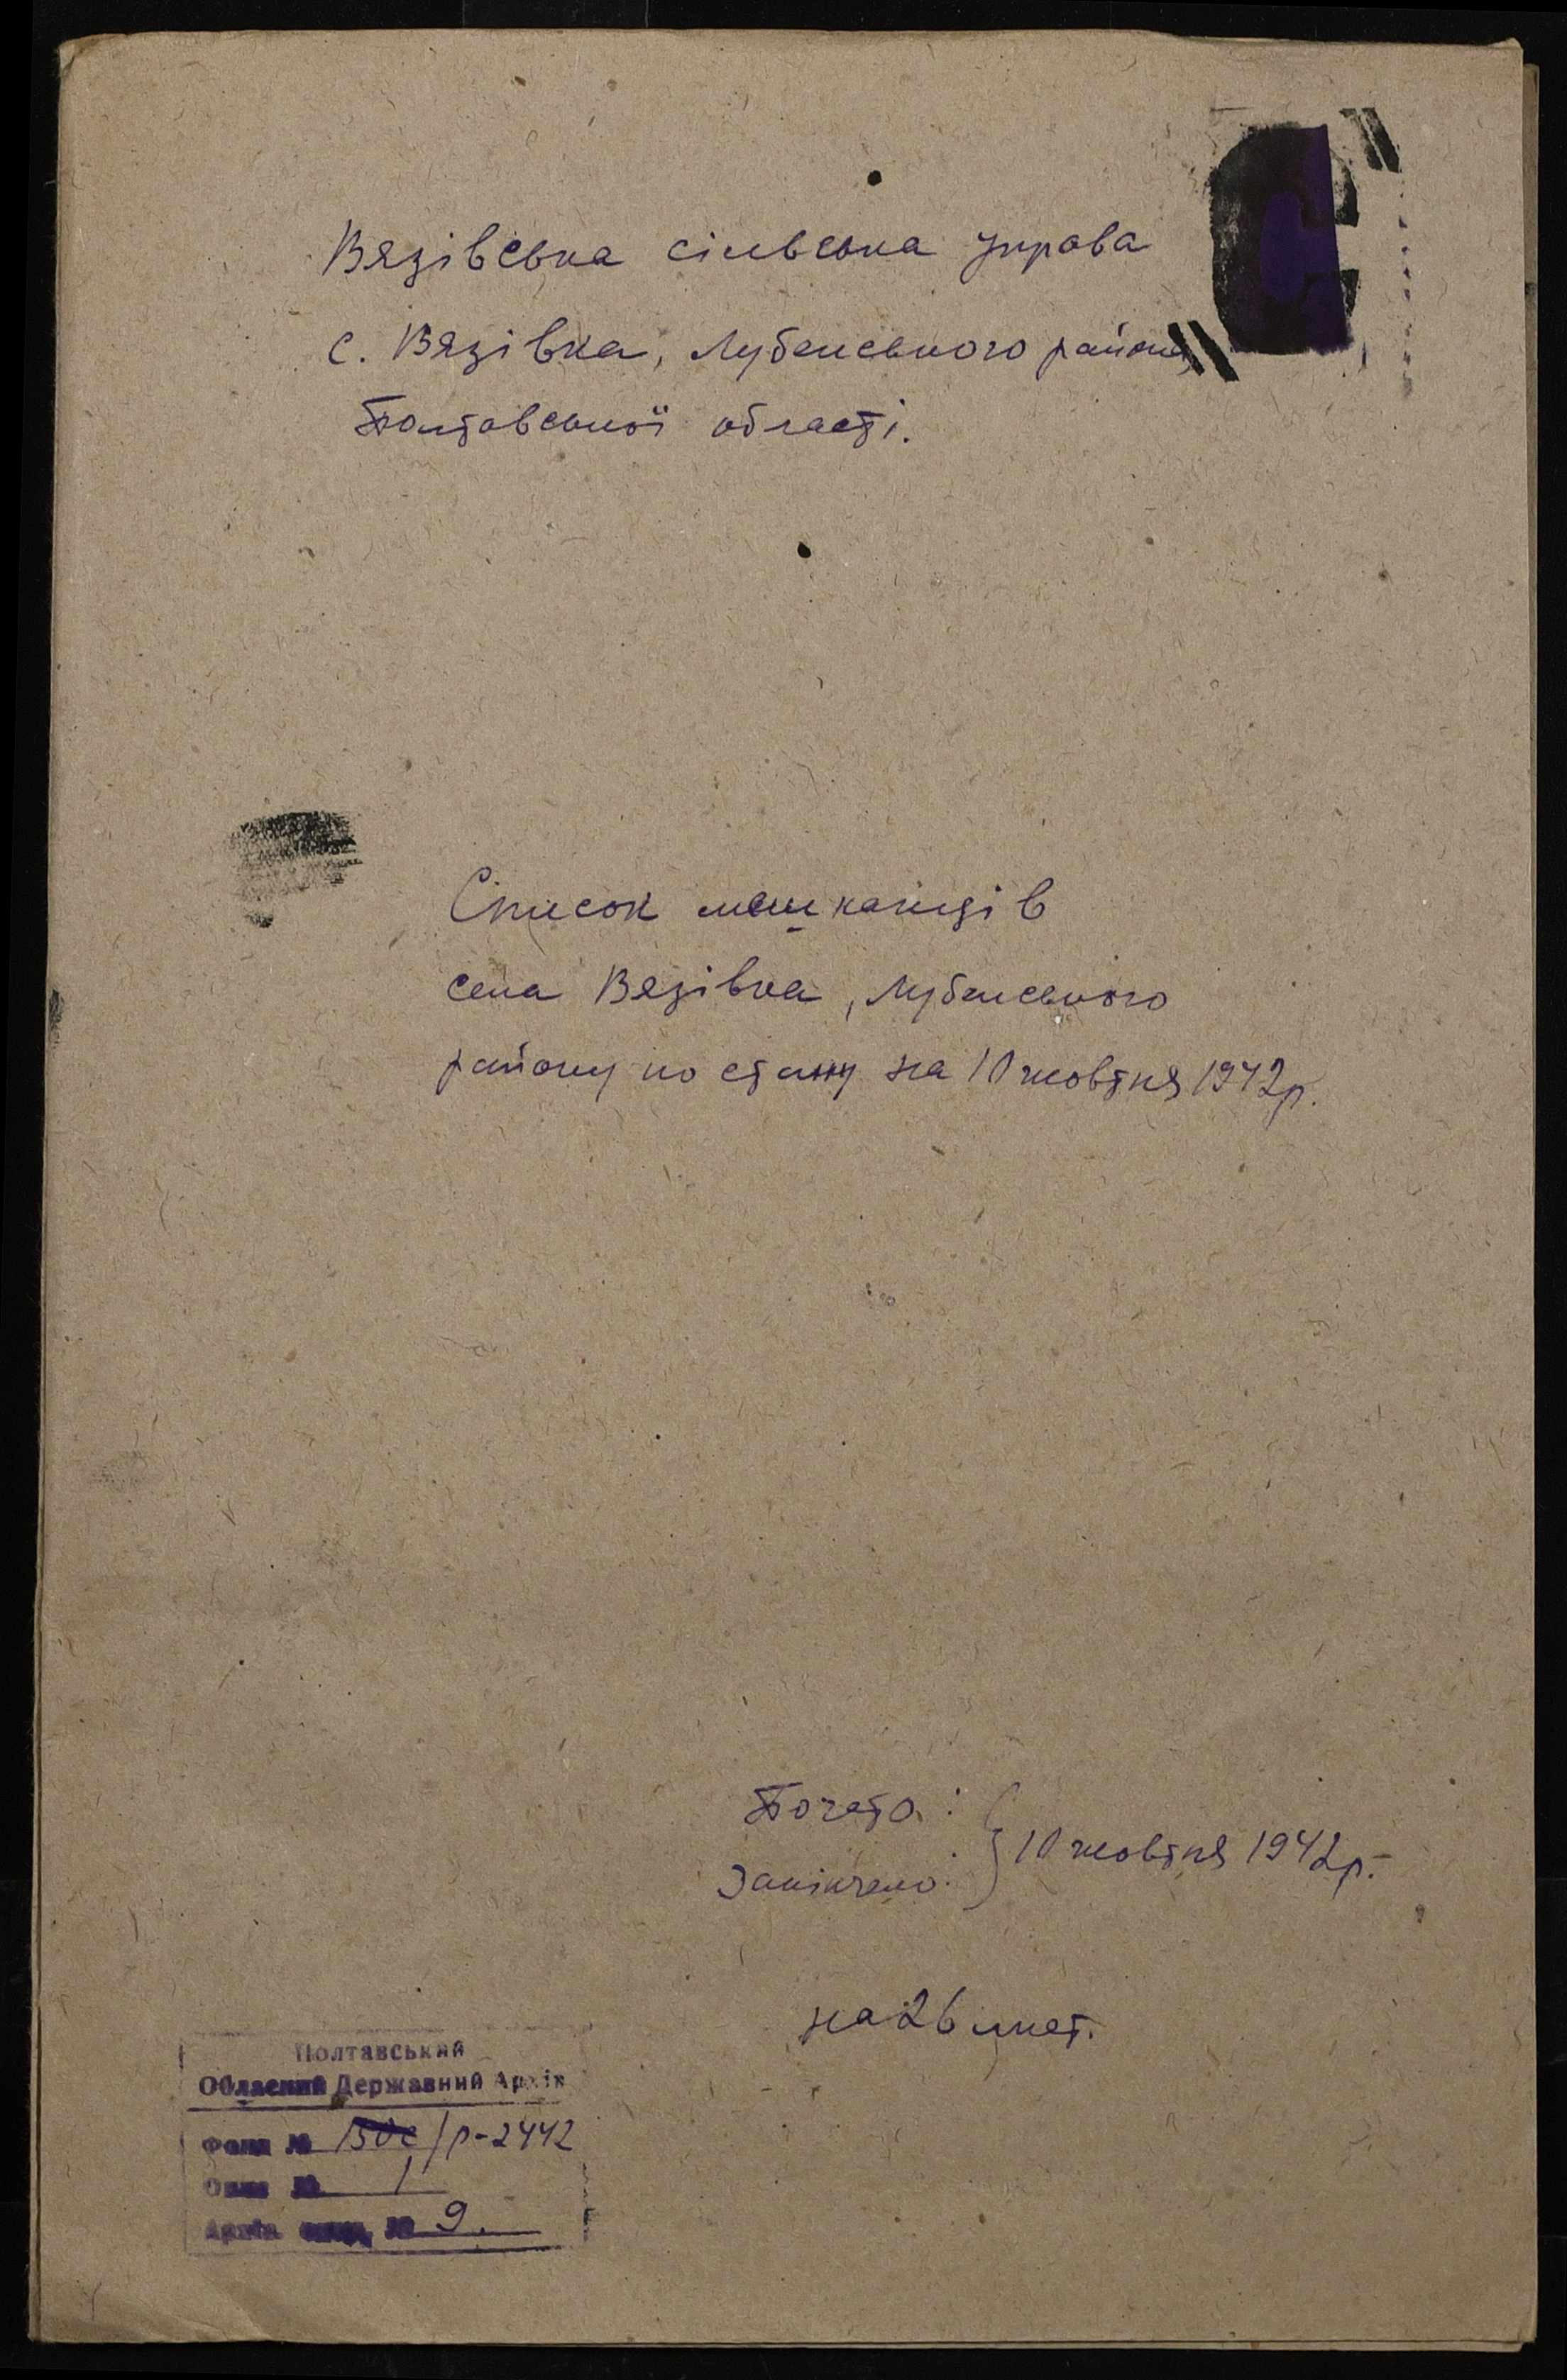 Вязівська сільська управа
с. Вязівка, Лубенського району
Полтавської області.
"С"
Список мешканців
села Вязівка, Лубенського
району по стану на 10 жовтня 1942р.
Почато:
Закінчено: } 10 жовтня 1942р.
на 26 лист.
Полтавський
Обласний Державний Архів
Фонд № 150с/р-2442
Опис № 1
Архів № 9.